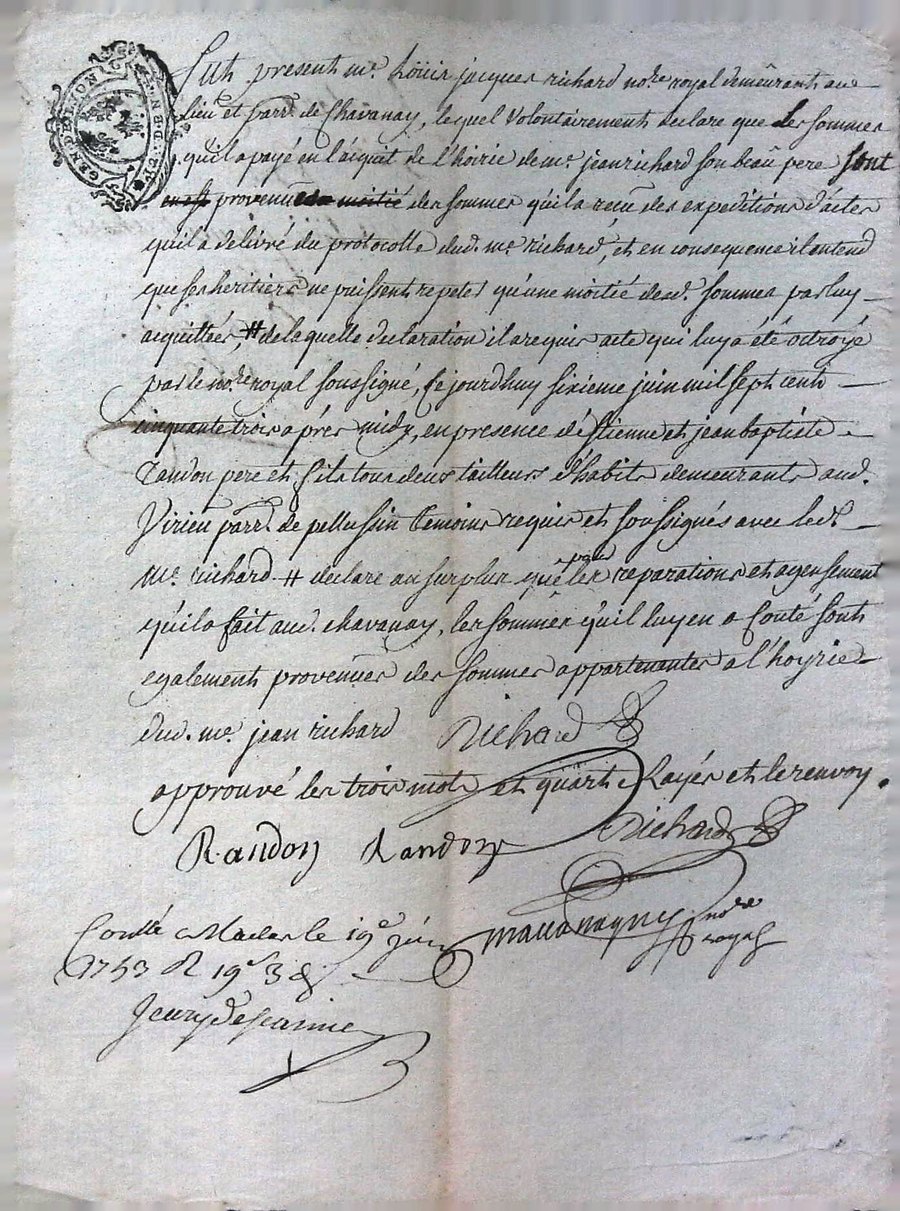 GEN. DE LYON
Fut present me. Loüis jacques richard nore. royal demeurant au
lieu et parr. de Chavanay, lequel volontairement declare que les sommes
qu'il a payé en l'acquit de l'hoirie de me. jean richard son beau pere sont
provenues moitié des sommes qu'il a reçu des expeditions d'actes
qu'il a delivré du protocolle dud. me. richard, et en consequence il entend
que ses heritiers ne puissent repeter qu'une moitié desd. sommes par luy
acquittées, # de laquelle declaration il a requis acte qui luy a été octroyé
par le nore. royal soussigné, Ce jourdhuy sixieme juin mil sept cent
cinquante trois aprés midy, en presence d'Etienne et jean baptiste
Randon pere et fils tous deux tailleurs d'habits demeurants aud.
Virieu parr. de pellussin temoins requis et soussignés avec led.
me. richard # declare au surplus que pour les reparations et agensement
qu'il a fait aud. chavanay, les sommes qu'il luy en a couté sont
egalement provenues des sommes appartenantes a l'hoyrie
dud. me. jean richard Richard
approuvé les trois mots et quart rayés et le renvoy.
Richard
Randon Randon
nore. royal
Conllé a Maclas le 19e juin
1753 R 19s 3d